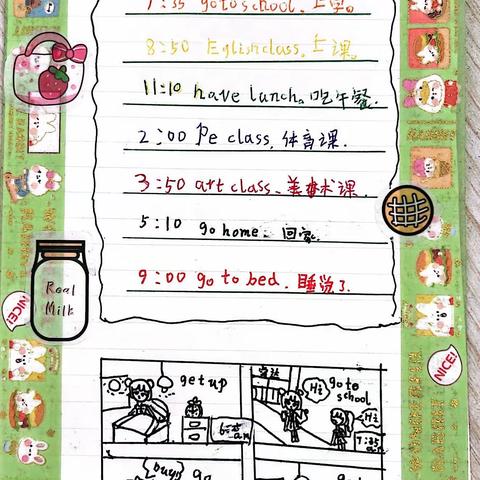 7:35 go to school. 上学。
8:50 Englishclass. 上课。
11:10 have lunch。吃午餐.
2:00 Pe class. 体育课.
3:50 art class、美术课.
5:10 go home、回家.
9:00 go to bed. 睡觉了.
Real
Milk
NICE!
NICE!
get up
Hi
go to
school
Hi
7:35
a.m